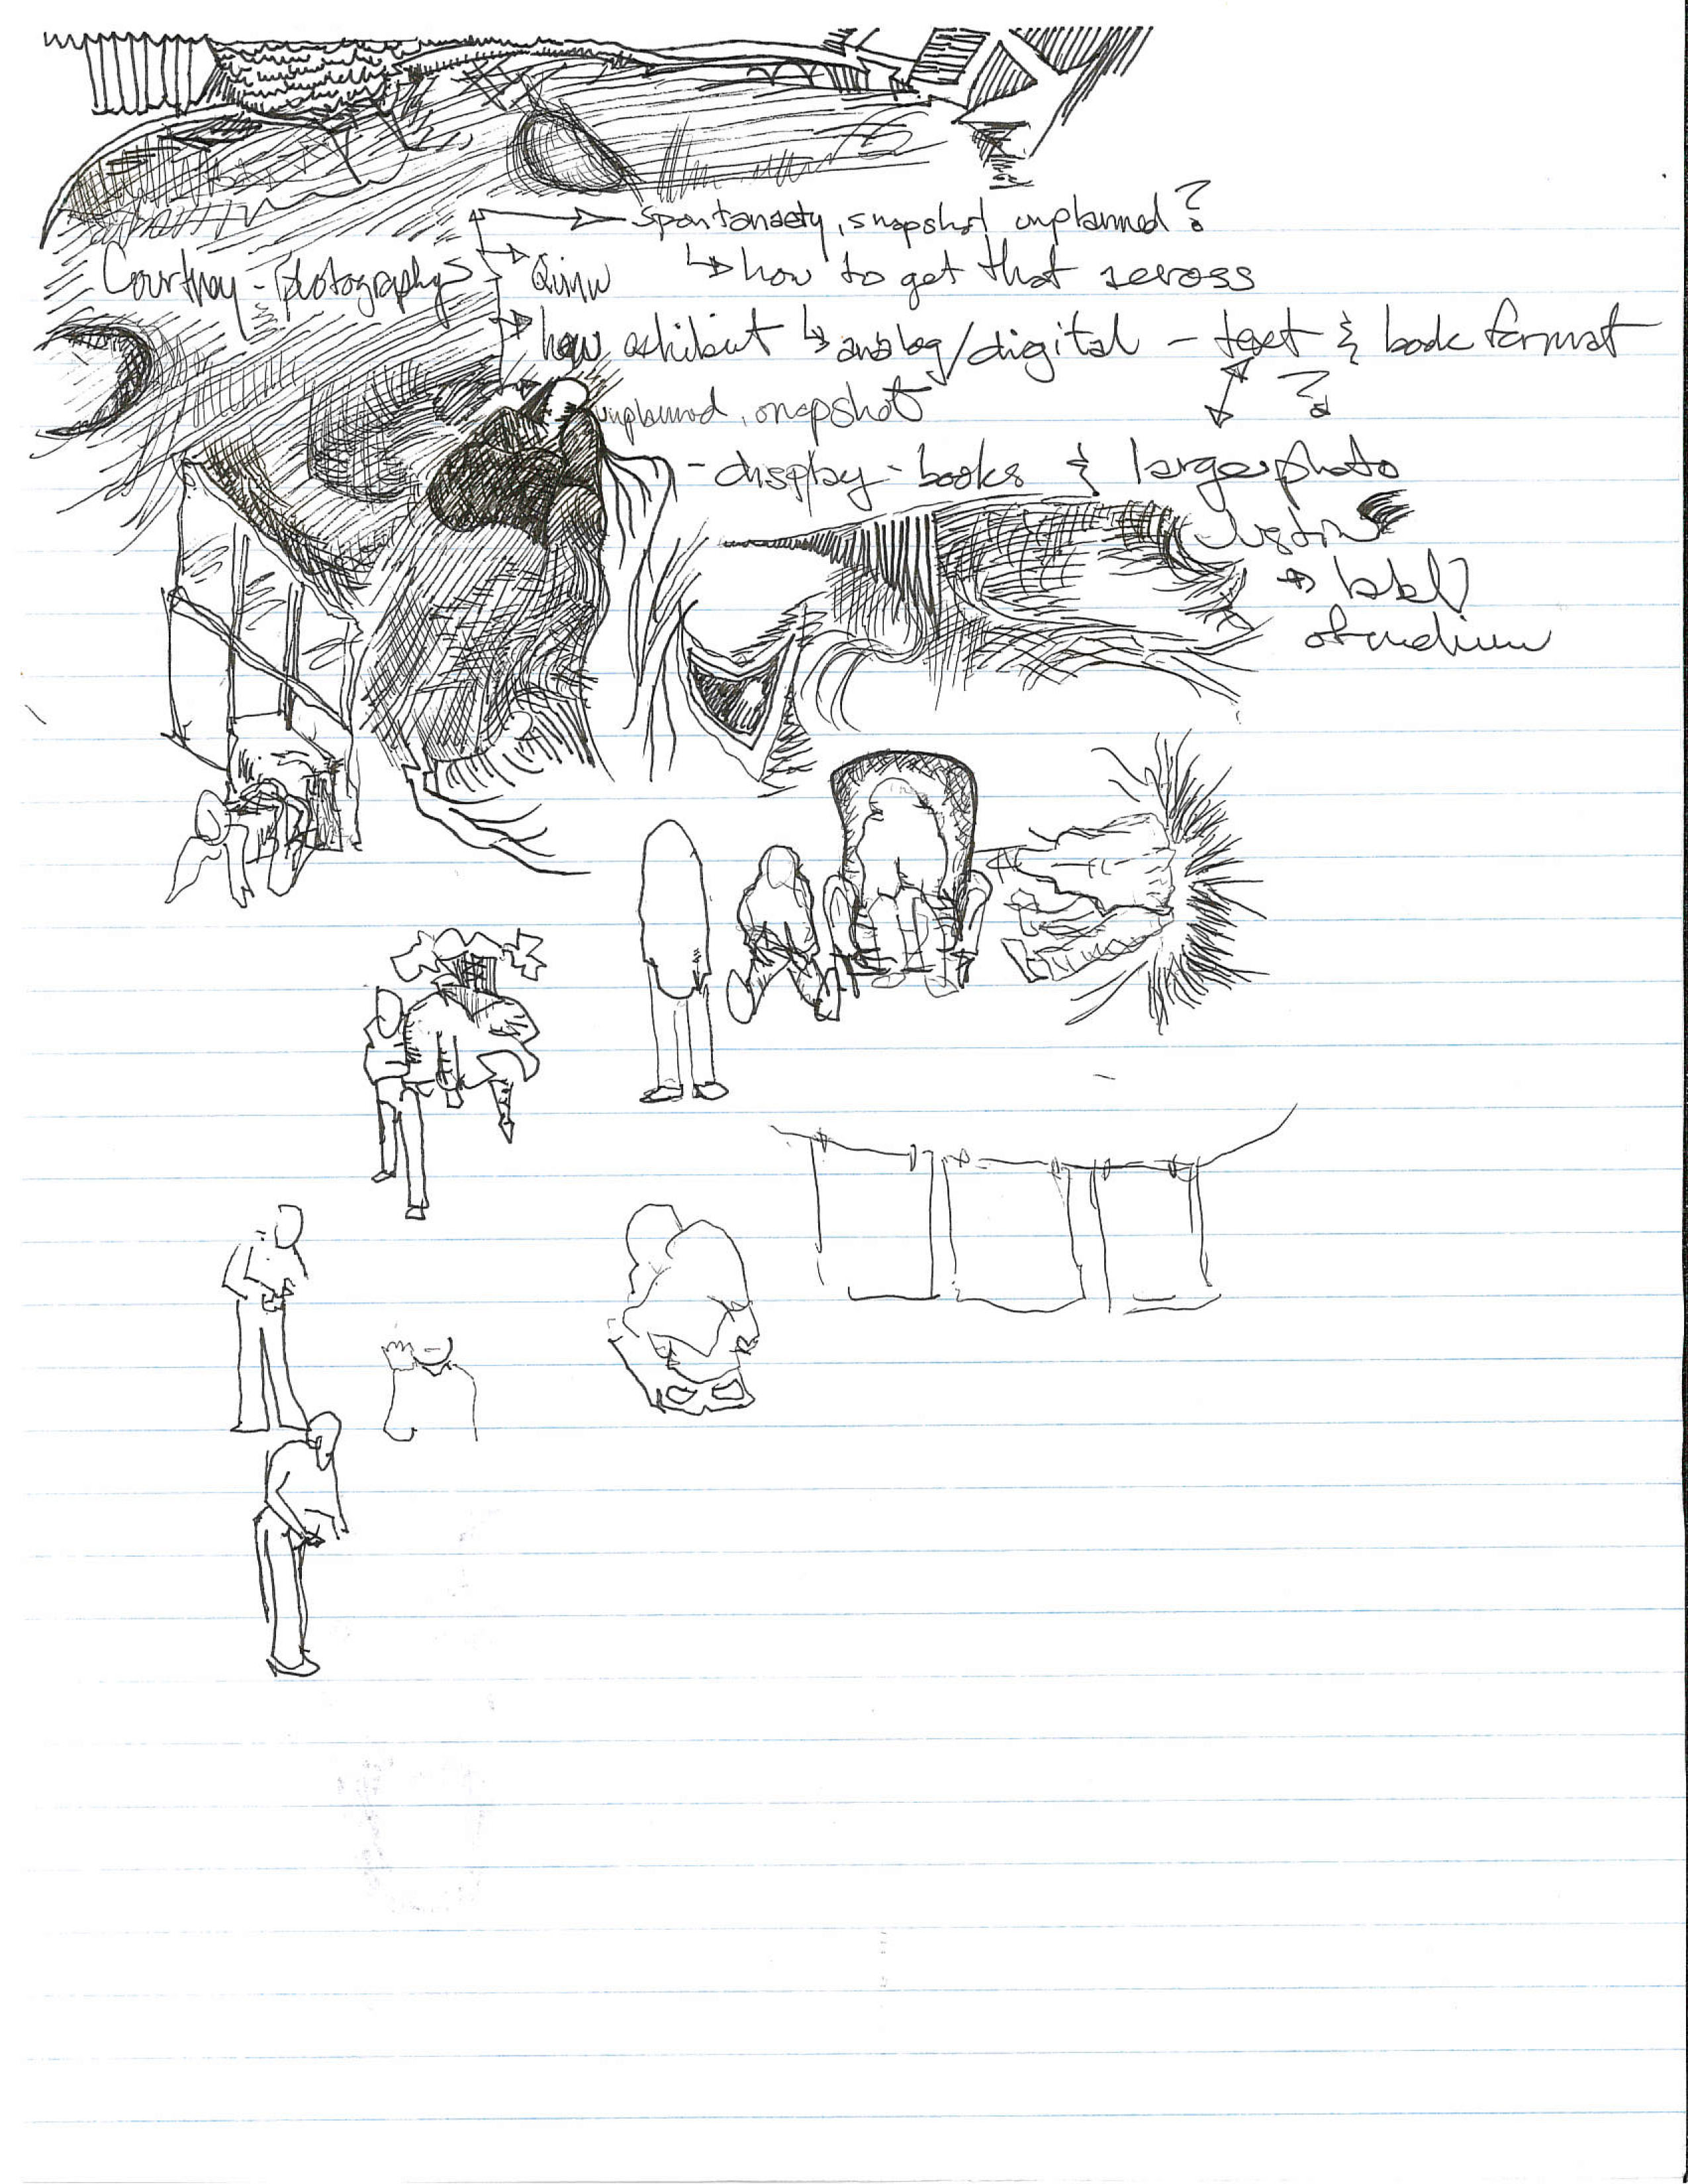 spontanaety, snapshot unplanned?
Courtney - photography
↳ how to get that across
how exhibit ↳ analog/digital - text & book format
?
unplanned, snapshot
- display - books & large photo
→ label
of medium